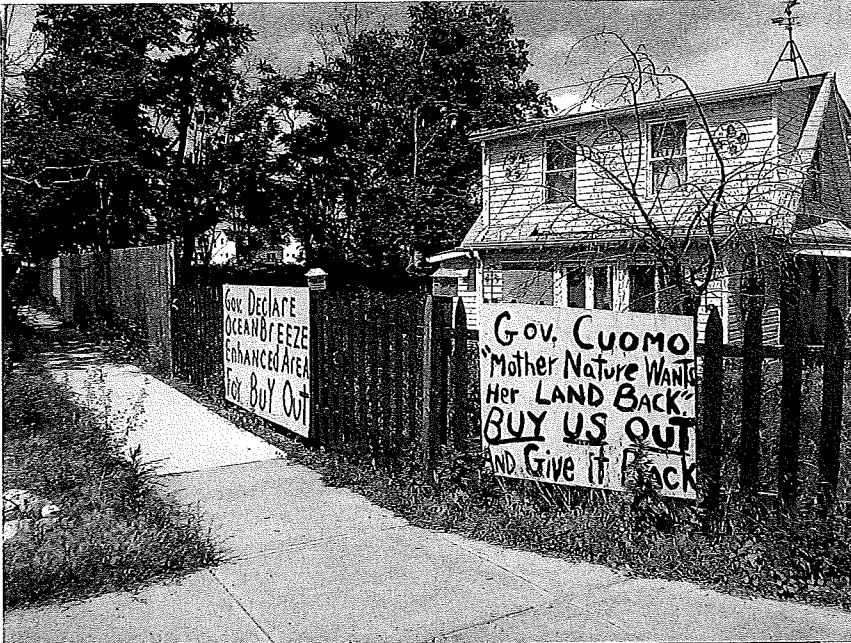 Gov. Declare
OceanBreeze
Enhanced Area
For BuY Out
Gov. Cuomo
"Mother Nature Wants
Her LAND BACK"
BUY US OUT
AND Give it Back